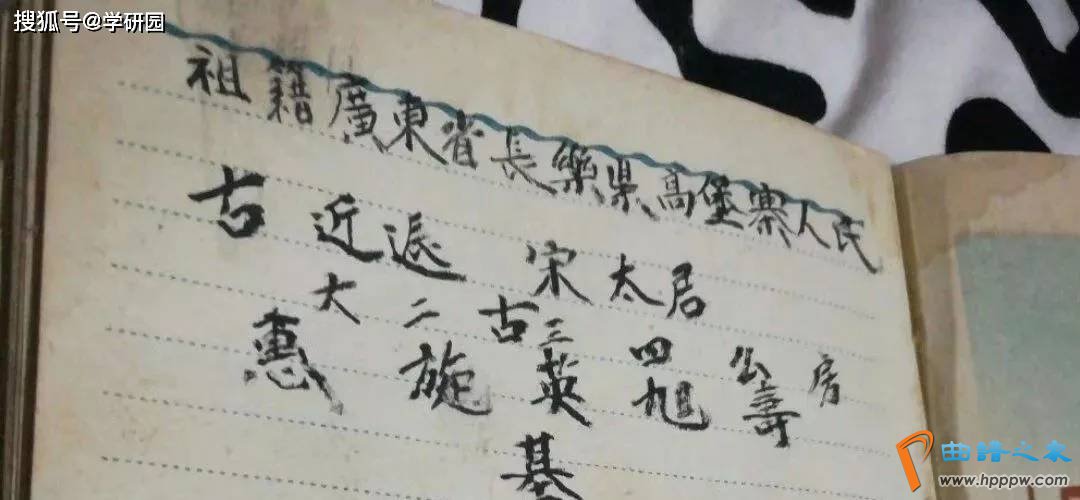 搜狐号@学研园
祖籍廣東省長樂県高堡寨人民
古近遠 宋太君
大二古三四公房
惠旎英旭壽
基
曲谱之家
www.hpppw.com